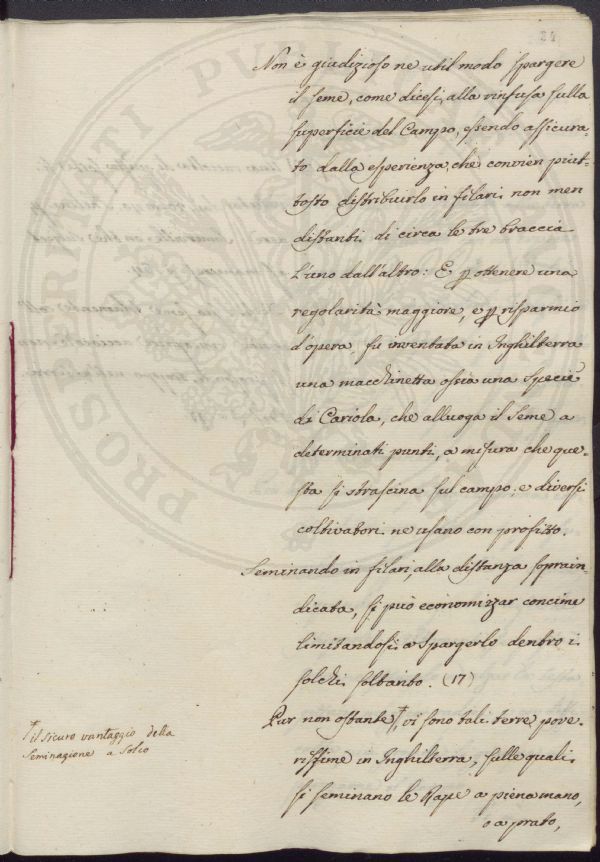 84
Non è giudizioso ne util modo spargere
il seme, come dicesi, alla rinfusa sulla
superficie del Campo, essendo assicura-
to dalla esperienza, che convien piut-
tosto distribuirlo in filari non men
distanti di circa le tre braccia
l'uno dall'altro: E ꝑ ottenere una
regolarità maggiore, e ꝑ risparmio
d'opera, fu inventata in Inghilterra
una macchinetta ossia una specie
di Cariola, che alluoga il seme a
determinati punti, a misura che que-
sta si strascina sul campo, e diversi
coltivatori ne usano con profitto.
Seminando in filari, alla distanza soprain-
dicata, si può economizzar concime
limitandosi a spargerlo dentro i
solchi soltanto. (17)
Pur non ostante †, vi sono tali terre pove-
rissime in Inghilterra, sulle quali
si seminano le Rape a piena mano,
o a prato,
† il sicuro vantaggio della
Seminagione a Solco
PROSPERITATI PUBLICAE